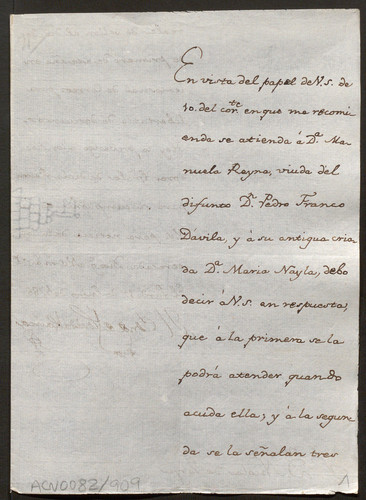 En vista del papel de V.S. de
10. del corte. en que me recomi-
enda se atienda á Da. Ma-
nuela Reyna, viuda del
difunto Dn. Pedro Franco
Dávila, y á su antigua cria-
da Da. Maria Nayla, debo
decir á V.S. en respuesta,
que á la primera se la
podrá atender quando
acuda ella; y á la segun-
da se la señalan tres
ACN0082/909
1